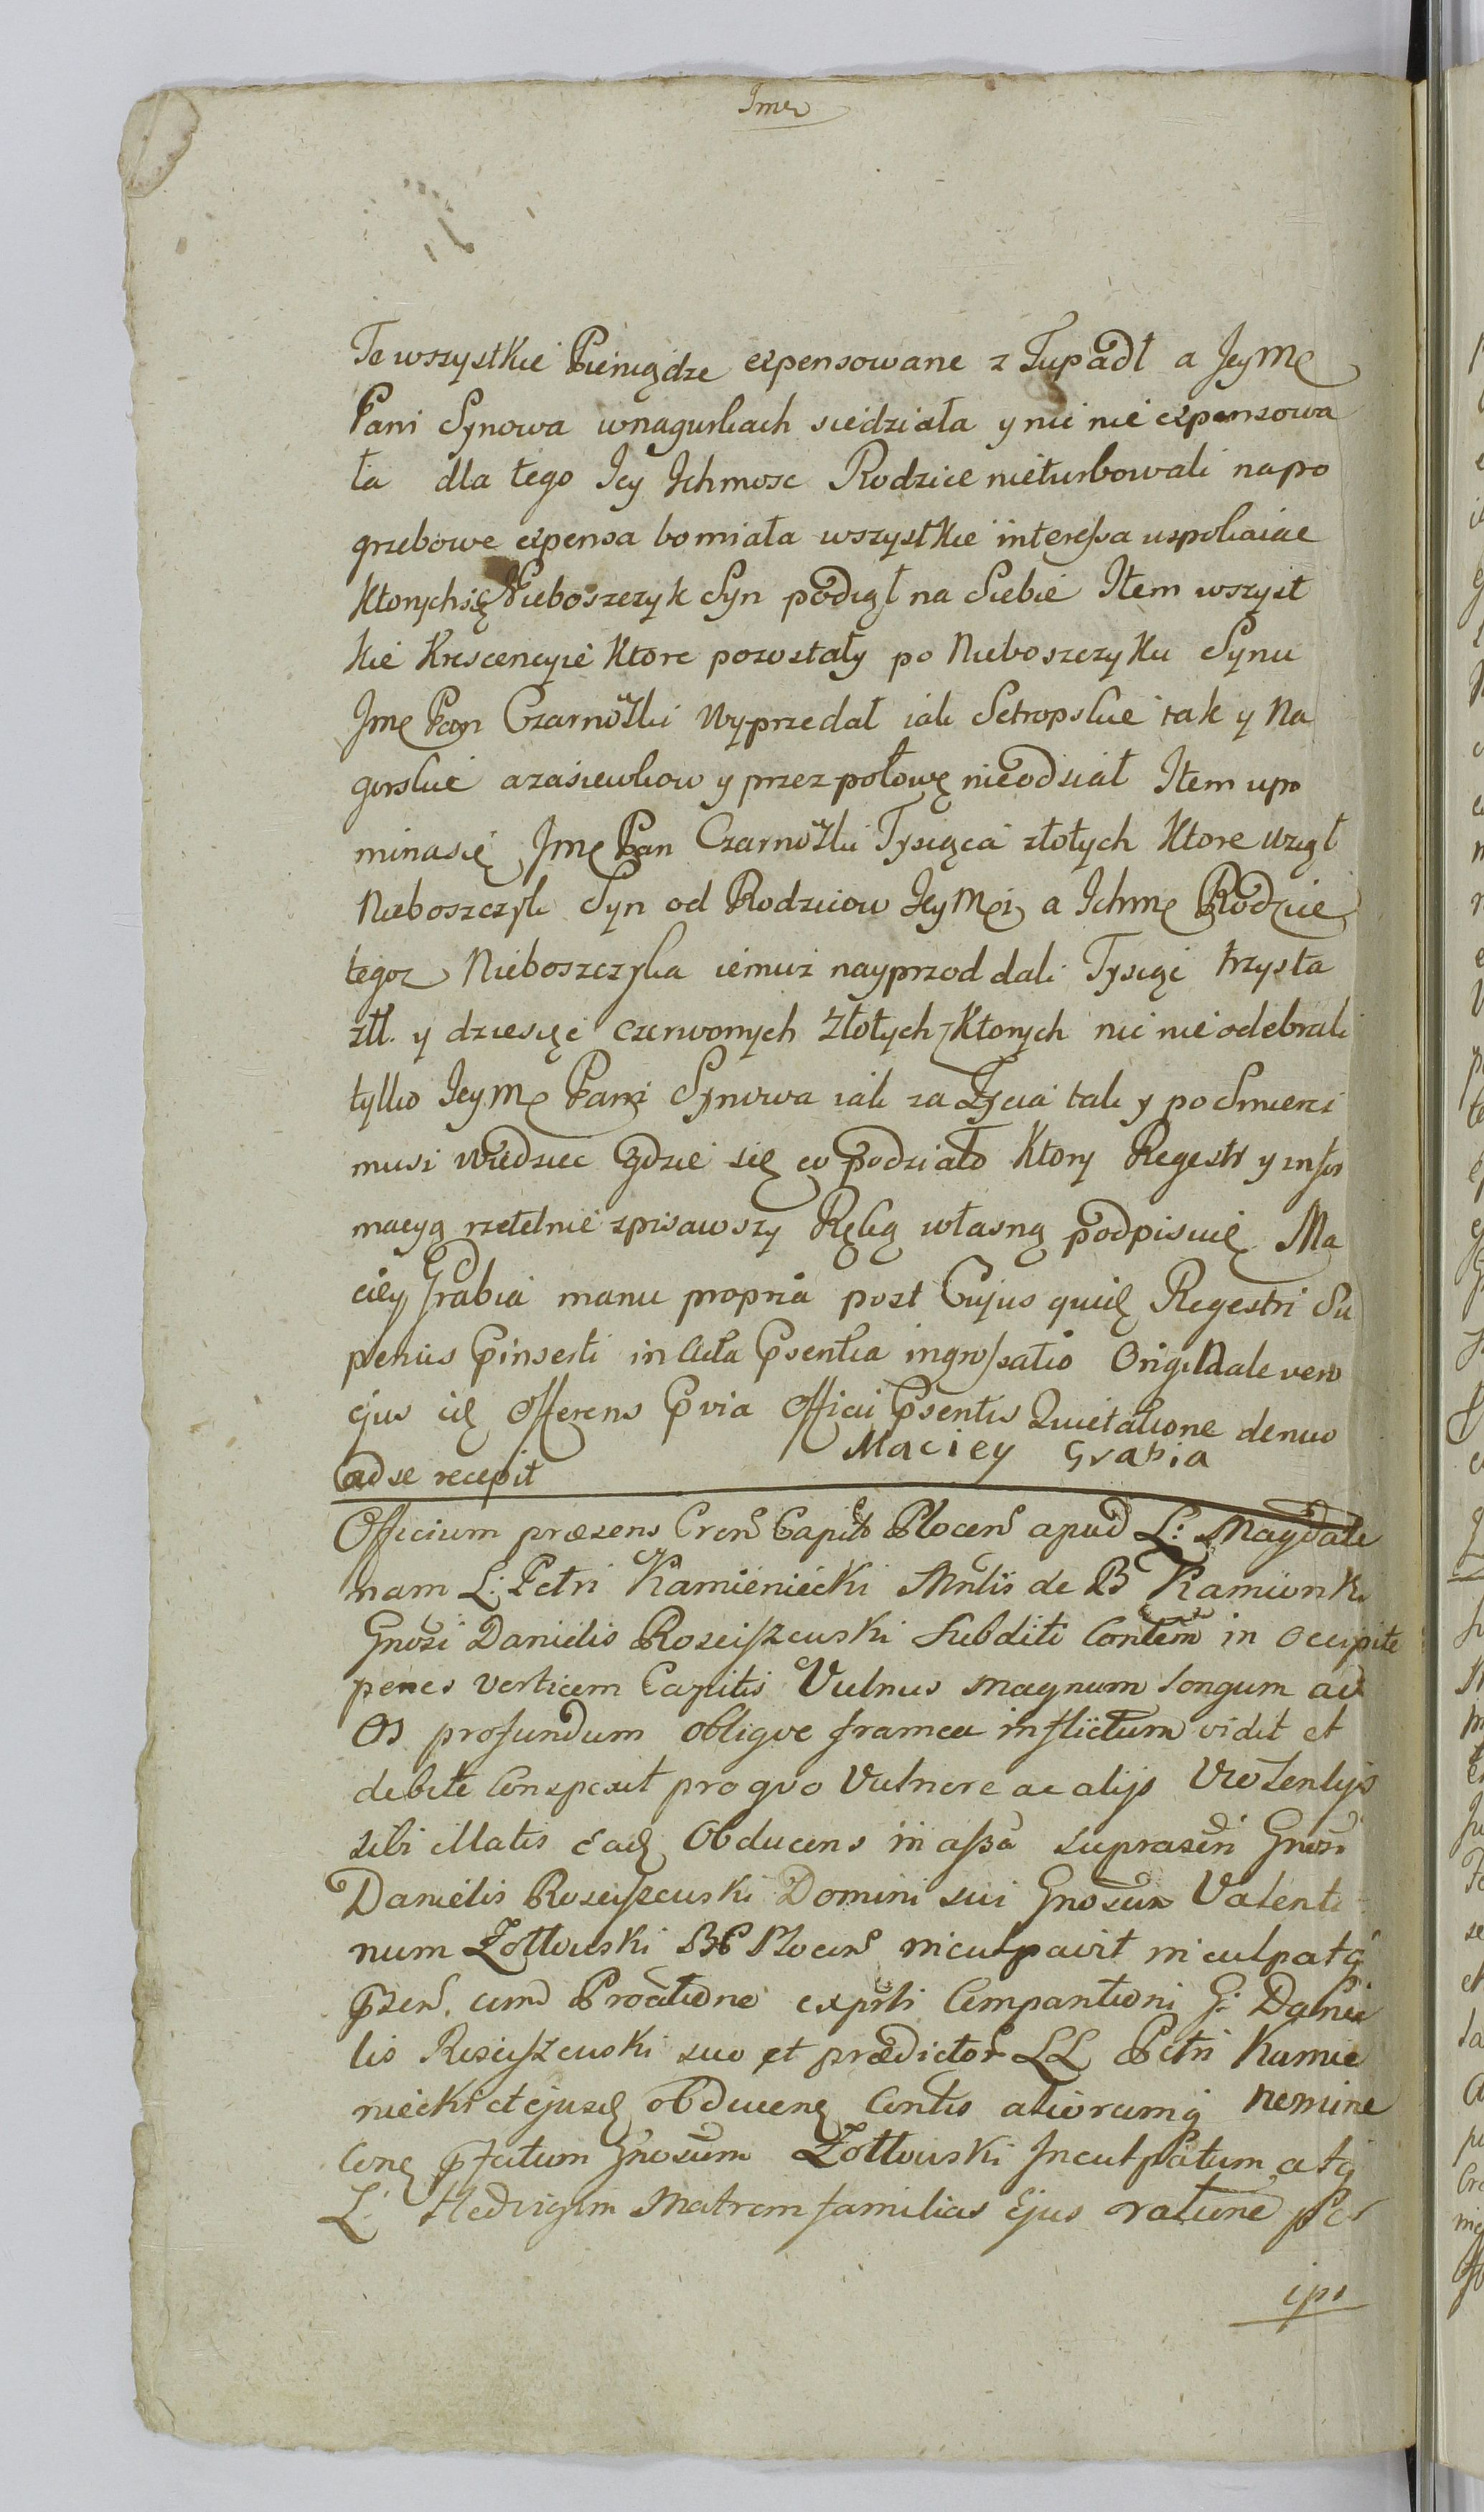 Jme
Te wszystkie Pieniądze expensowane z Łupadł a Jey Mę
Pani Synowa wnagurkach siedziała y nic nie expensowa
ła dla tego Jey Ichmosc Rodzice nieturbowali napo
grzebowe expensa bo miała wszystkie interessa uspokaiac
ktorychsię Nieboszczyk Syn podiął na Siebie Item wszyst
kie Krescencyie ktore pozostały po Nieboszczyku Synu
Jmę Pan Czarno Wyprzedał iak Setropskie tak y Na
gorskie azasiewkow y przez połowę nieodsiał Item upo
minasię Jmę Pan Tysiąca złotych ktore wziął
Nieboszczyk Syn od Rodzicow Jey Mći a Ichmę Rodzice
tegoz Nieboszczyka iemuz nayprzod dali Tysiąc trzysta
złł. y dziesięc czerwonych Złotych z ktorych nic nie odebrali
tylko Jey Mę Pani Synowa iak za Zycia tak y po Smierci
musi wiedziec gdzie się co podziało Ktory Regestr y infor
macyą rzetelnie zpisawszy Ręką własną podpisuię Ma
ciey Grabia manu propria post Cujus quidę Regestri Su
perius insesti in Acta Psentia ingrossatio Originale vero
ejus idę Offerens Pvia Officii Psentis Quietatione denuo
ad se recepit Maciey Grabia
Officium præsens Cren Capit Plocen apud L: Magdale
nam L: Petri Kamieniecki de B Kamionki
Gnosi Danielis Rosciszewski Subditi Contem in Occipite
penes verticem Capitis Vulnus magnum longum ad
Os profundum oblique framea inflictum vidit et
debite Conspexit pro quo Vulnere ac alijs Violentijs
sibi illatis eadę Obducens in assa suprascri Gnosi
Danielis Rosciszewski Domini sui Gnosum Valenti
num Zołtowski Plocen inculpavit inculpatq
Pzen. cum Proatione exprti Comparitioni G: Danie
lis Rosciszewski suo et prædictor LL Petri Kamie
niecki et ejusdę obducenę Contis aliorumq nemine
Conę Pfatum Gnosum Zołtowski Inculpatum atq
L: Hedvigim Matrem familias Ejus ratione
ipi